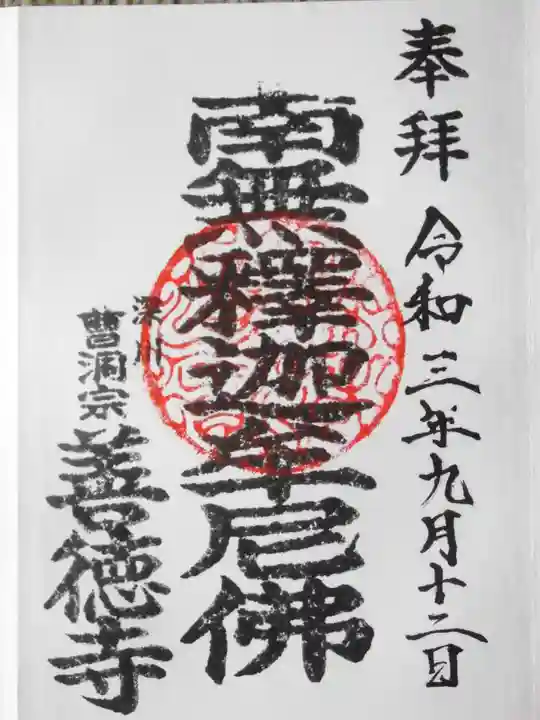 奉拝 令和三年九月十二日
南無釋迦牟尼佛
深川
曹洞宗
善徳寺